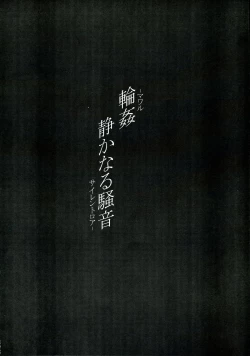 輪姦
-マワル
静かなる騒音
サイレントロアー